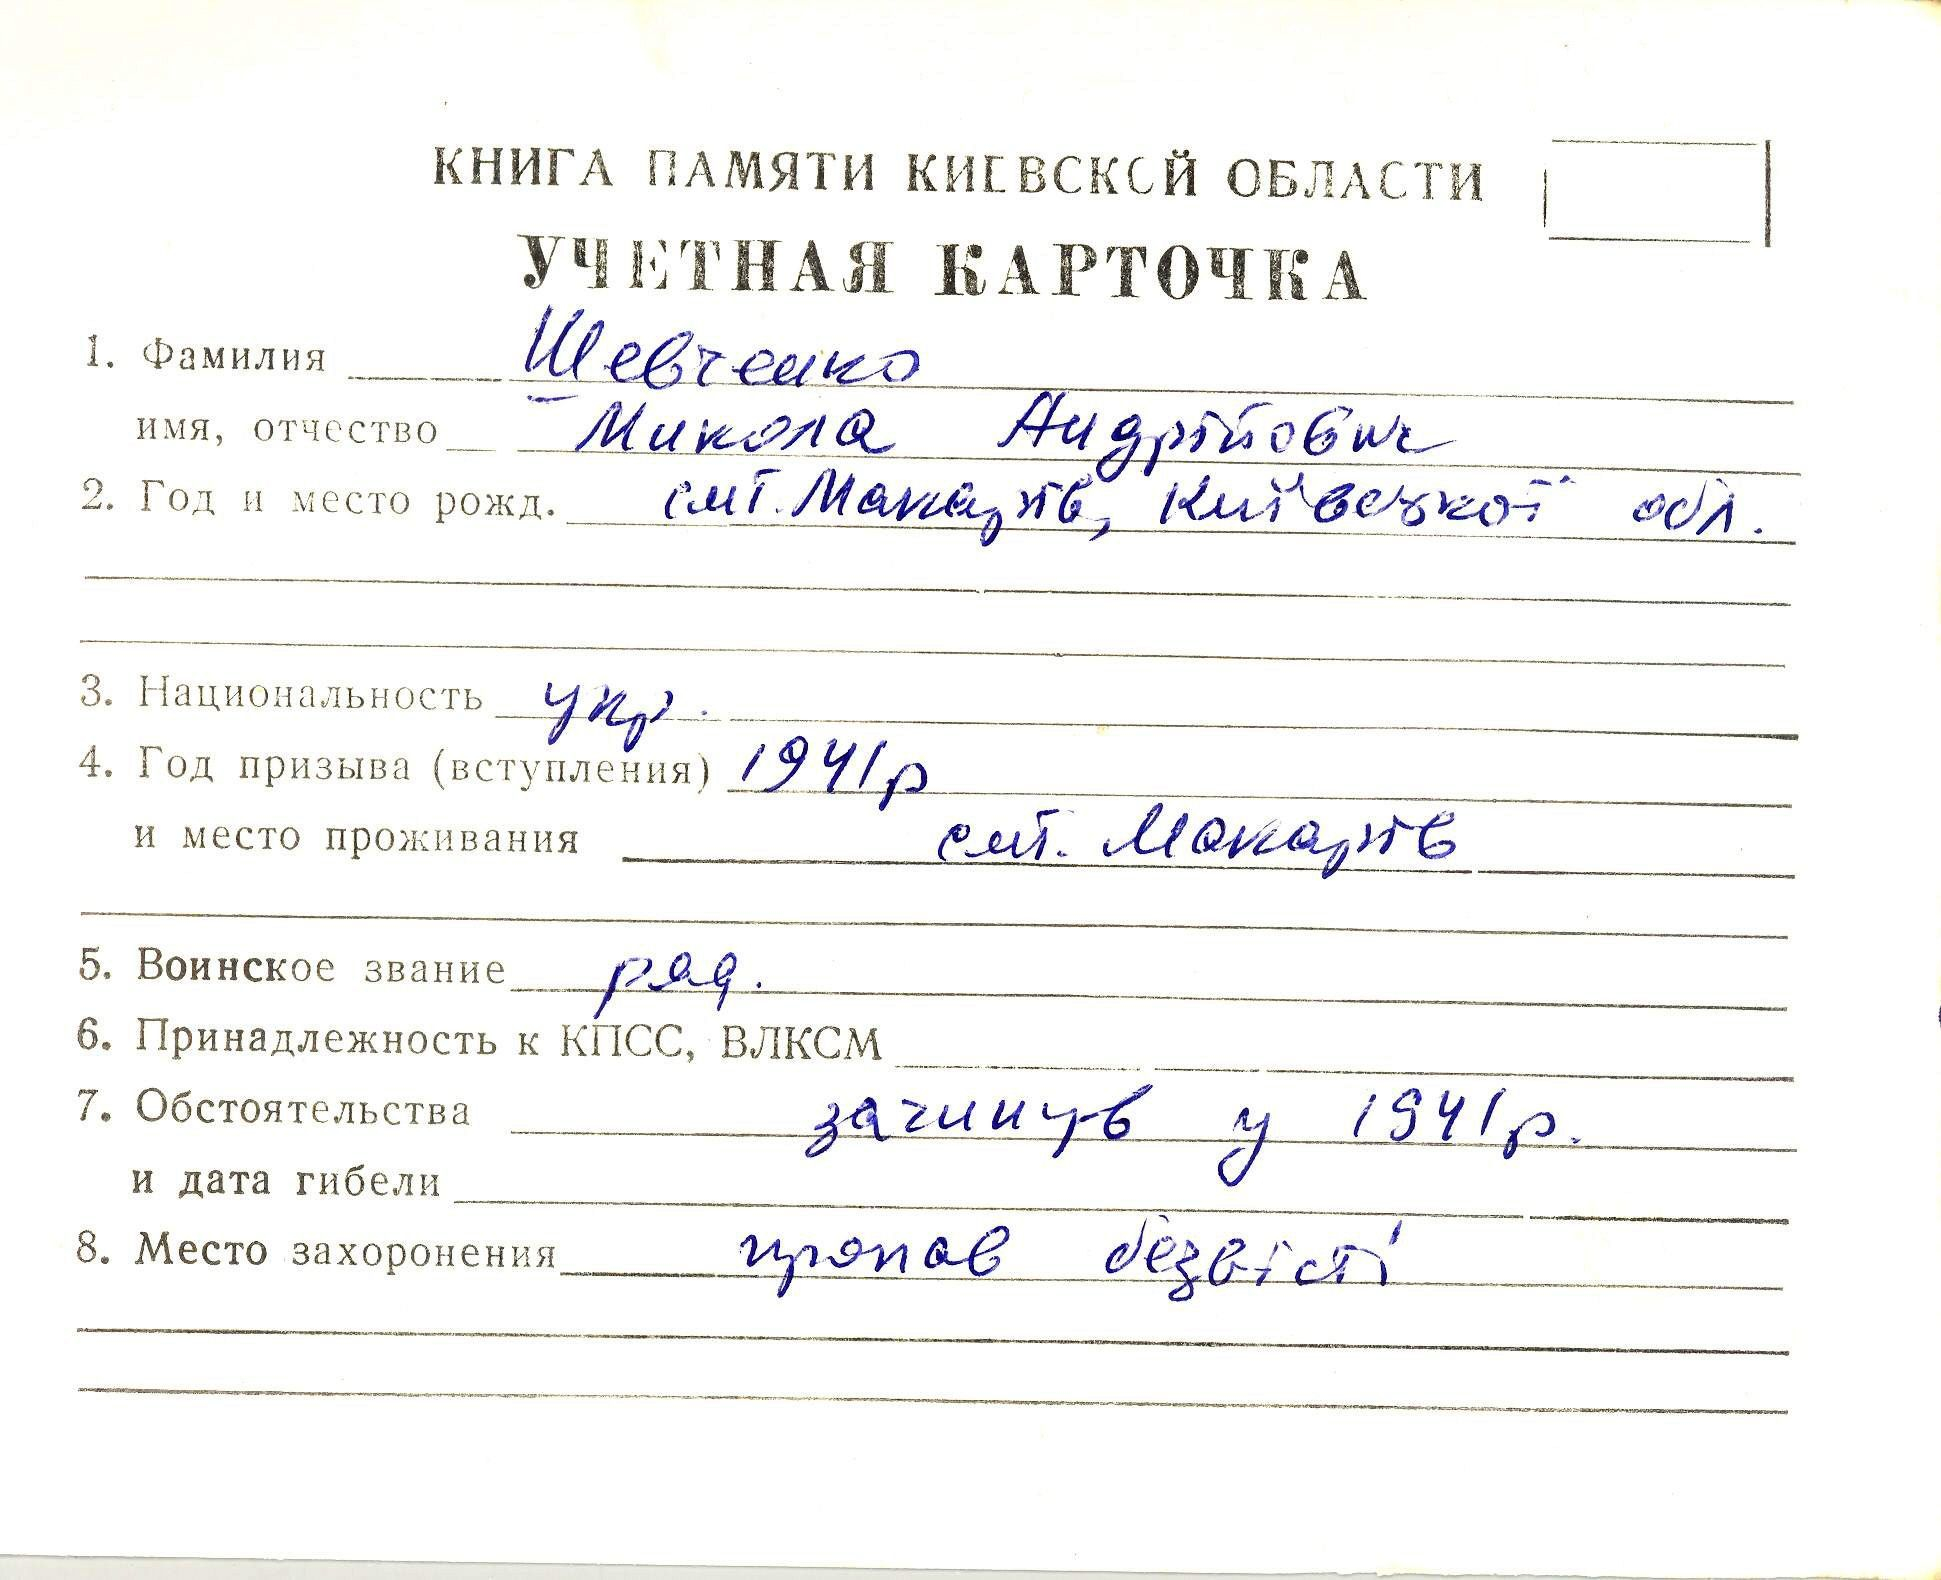 КНИГА ПАМЯТИ КИЕВСКОЙ ОБЛАСТИ
УЧЕТНАЯ КАРТОЧКА
1. Фамилия Шевченко
имя, отчество Микола Андрійович
2. Год и место рожд. смт. Макарів, Київської обл.
3. Национальность укр.
4. Год призыва (вступления) 1941р
и место проживания смт. Макарів
5. Воинское звание ряд.
6. Принадлежность к КПСС, ВЛКСМ
7. Обстоятельства загинув у 1941р.
и дата гибели
8. Место захоронения пропав безвісті